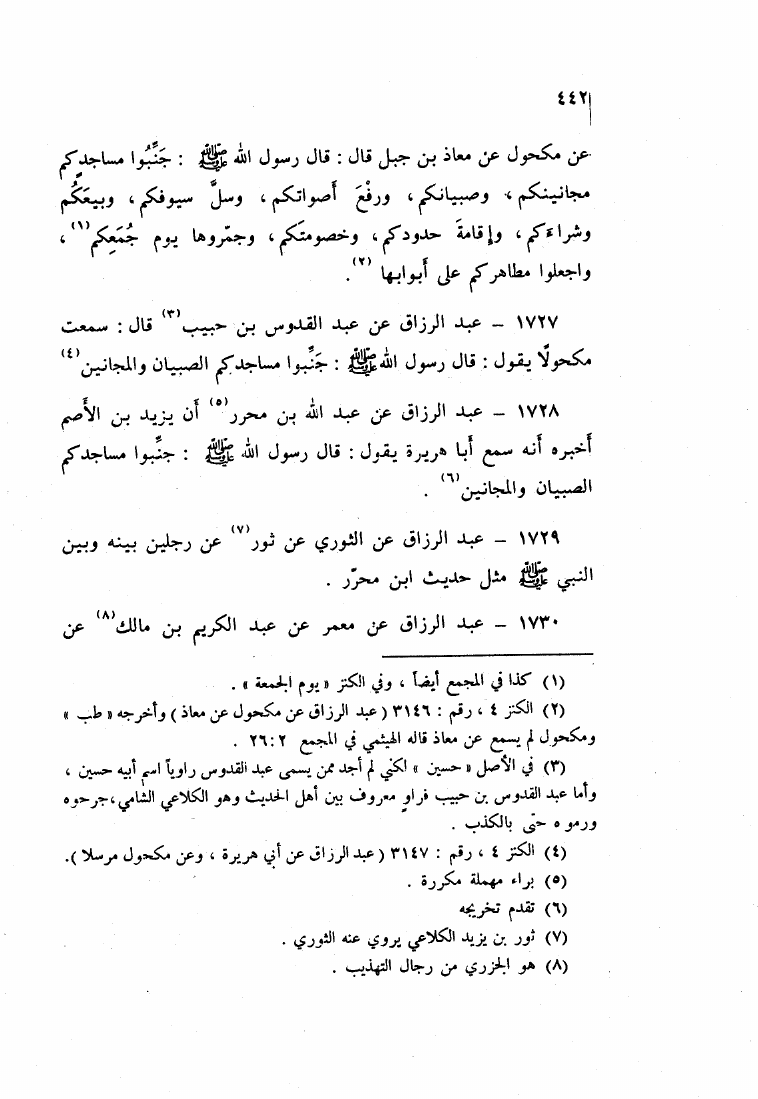 ٤٤٢
عن مكحول عن معاذ بن جبل قال : قال رسول الله ﷺ : جَنِّبُوا مساجدكم
مجانينكم ، وصبيانكم ، ورفْعَ أصواتكم ، وسلَّ سيوفكم ، وبيعَكُم
وشراءَكم ، وإقامةَ حدودكم ، وخصومتَكم ، وجمّروها يوم جُمَعِكم(١) ،
واجعلوا مطاهركم على أبوابها (٢) .
١٧٢٧ – عبد الرزاق عن عبد القدوس بن حبيب(٣) قال : سمعت
مكحولًا يقول : قال رسول الله ﷺ : جَنِّبوا مساجدكم الصبيان والمجانين(٤)
١٧٢٨ – عبد الرزاق عن عبد الله بن محرر(٥) أن يزيد بن الأصم
أخبره أنه سمع أبا هريرة يقول : قال رسول الله ﷺ : جنِّبوا مساجدكم
الصبيان والمجانين(٦) .
١٧٢٩ – عبد الرزاق عن الثوري عن ثور(٧) عن رجلين بينه وبين
النبي ﷺ مثل حديث ابن محرّر .
١٧٣٠ – عبد الرزاق عن معمر عن عبد الكريم بن مالك(٨) عن
(١) كذا في المجمع أيضاً ، وفي الكنز « يوم الجمعة » .
(٢) الكنز ٤ ، رقم : ٣١٤٦ ( عبد الرزاق عن مكحول عن معاذ ) وأخرجه « طب »
ومكحول لم يسمع عن معاذ قاله الهيثمي في المجمع ٢٦:٢ .
(٣) في الأصل « حسين » لكني لم أجد ممن يسمى عبد القدوس راوياً اسم أبيه حسين ،
وأما عبد القدوس بن حبيب فراوٍ معروف بين أهل الحديث وهو الكلاعي الشامي ، جرحوه
ورموه حتى بالكذب .
(٤) الكنز ٤ ، رقم : ٣١٤٧ ( عبد الرزاق عن أبي هريرة ، وعن مكحول مرسلا ).
(٥) براء مهملة مكررة .
(٦) تقدم تخريجه
(٧) ثور بن يزيد الكلاعي يروي عنه الثوري .
(٨) هو الجزري من رجال التهذيب .